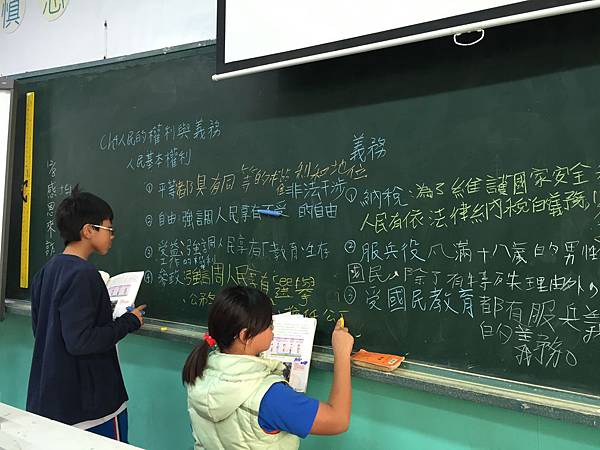 慎
Ch4人民的權利與義務
人民基本權利
① 平等 都具有同等的權利和地位
② 自由 強調人民享有不受非法干涉的自由
③ 受益 強調人民享有受教育、生存、工作的權利
④ 參政 強調人民享有選舉
義務
① 納稅：為了維護國家安全
人民有依法律納稅的義務
② 服兵役 凡滿十八歲的男性
國民，除了有特殊理由外，
都有服兵義
的義務。
③ 受國民教育